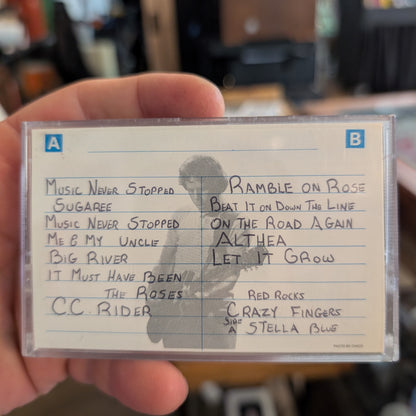 A
B
Music Never Stopped
Sugaree
Music Never Stopped
Me & My Uncle
Big River
It Must Have Been
The Roses
C.C. Rider
Ramble on Rose
Beat It on Down The Line
On The Road Again
Althea
Let It Grow
Red Rocks
Crazy Fingers
Side A Stella Blue